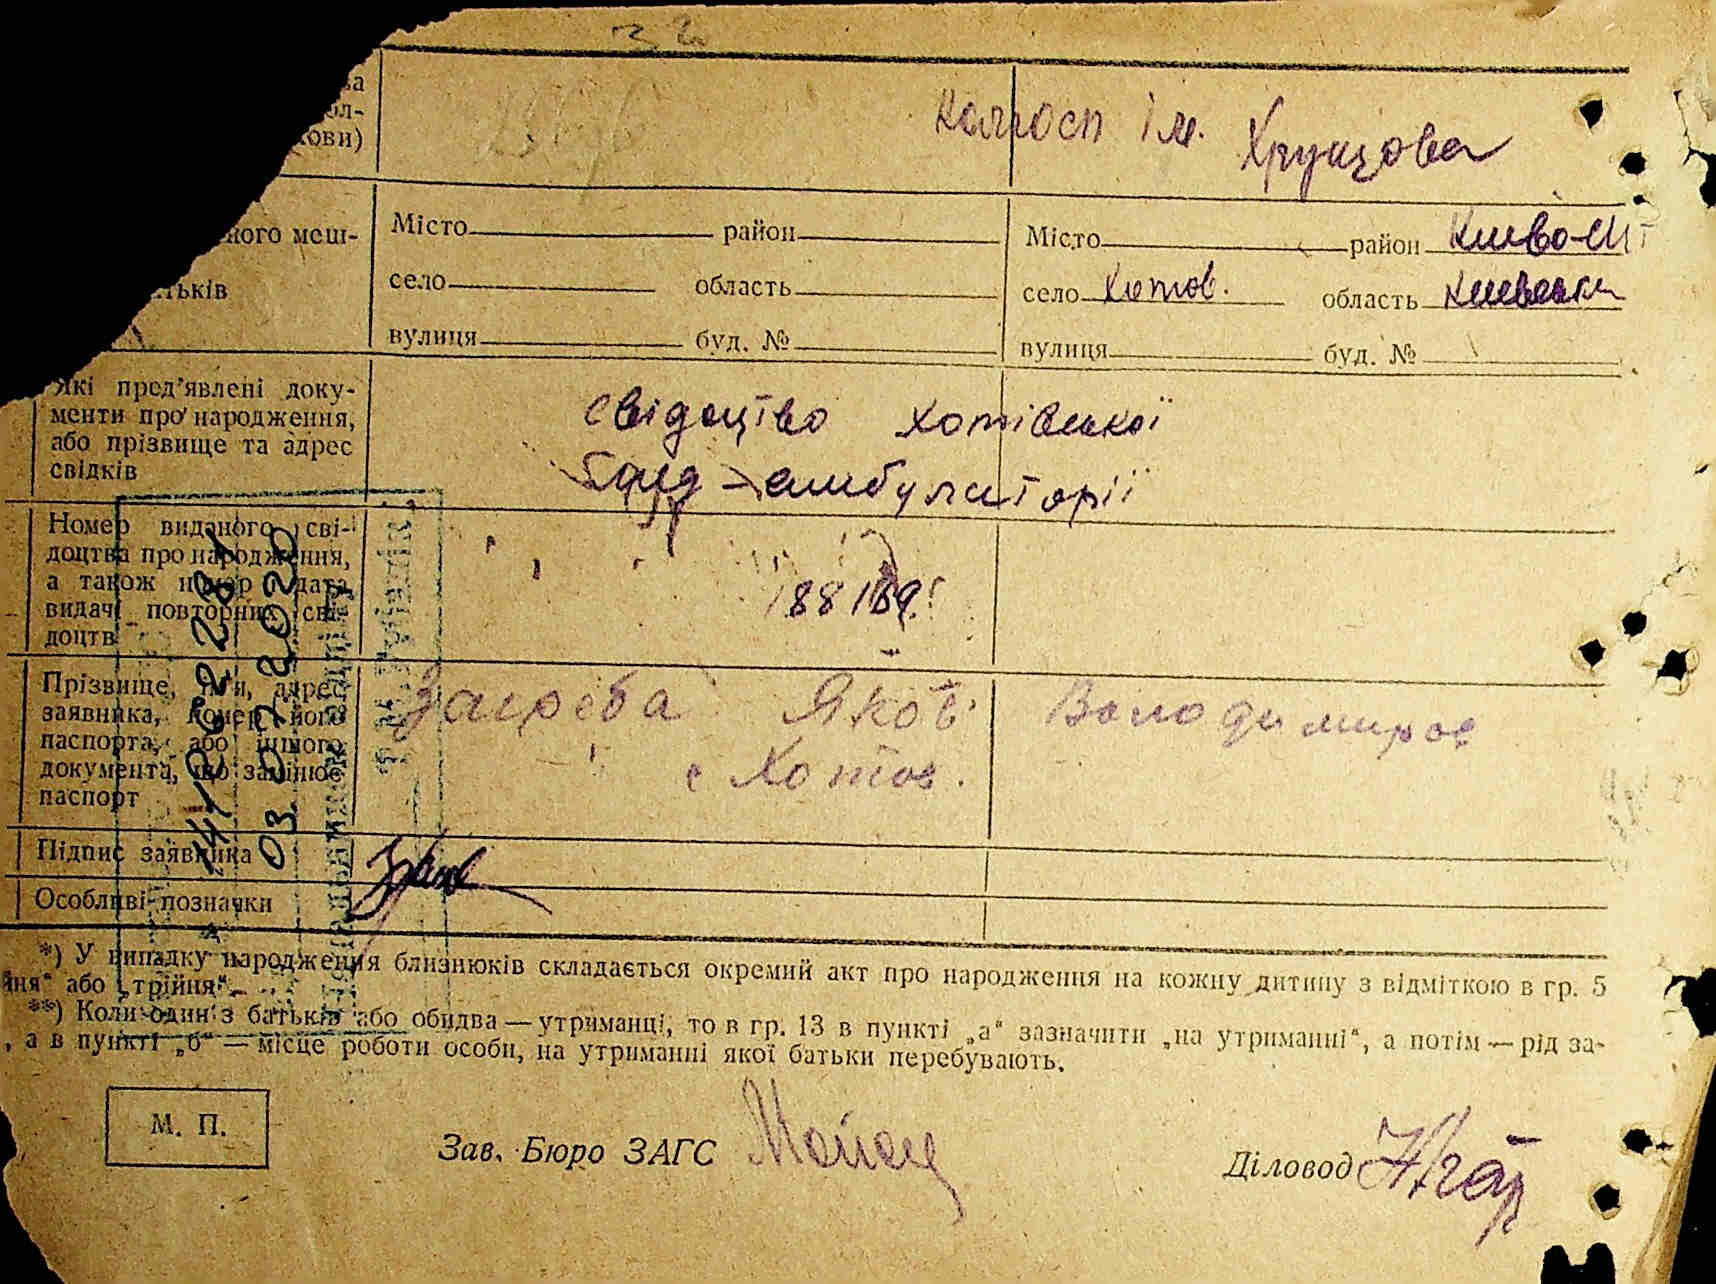 32
ва
ол-
кови)
колгосп ім. Хрущова
ного меш-
тьків
Місто район
село область
вулиця буд. №
Місто район Киево-Ст
село Хотов. область Киевська
вулиця буд. №
Які пред'явлені доку-
менти про народження,
або прізвище та адрес
свідків
свідоцтво хотівської
амбулаторії
Номер виданого сві-
доцтва про народження,
а також номер дата
видачі повторних сві-
доцтв
188189
Прізвище, ім'я, адрес
заявника, номер його
паспорта, або іншого
документа, що замінює
паспорт
Загреба Яков Володимиров
с Хотов.
Підпис заявника
Особливі позначки
03 07 2020
*) У випадку народження близнюків складається окремий акт про народження на кожну дитину з відміткою в гр. 5
йня" або „трійня".
**) Коли один з батьків або обидва — утриманці, то в гр. 13 в пункті „а" зазначити „на утриманні", а потім — рід за-
, а в пункті „б" — місце роботи особи, на утриманні якої батьки перебувають.
М. П.
Зав. Бюро ЗАГС
Діловод